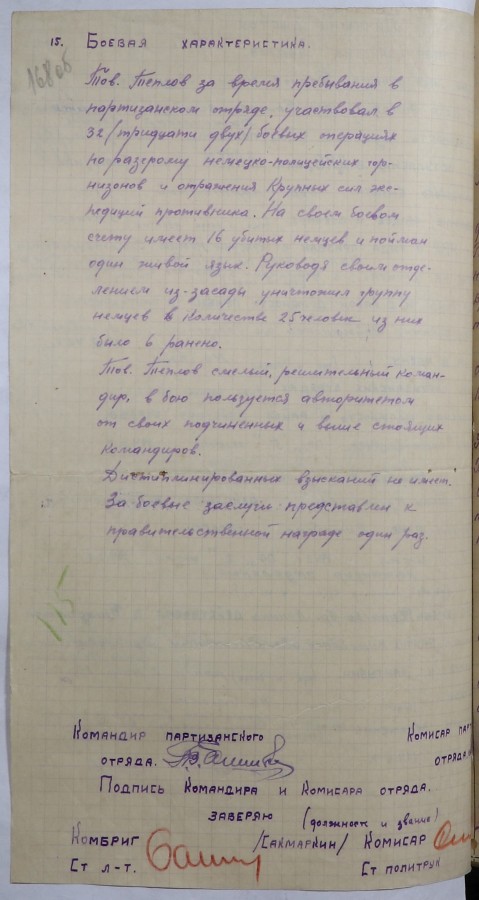 15. Боевая характеристика.
168 об
Тов. Теплов за время пребывания в
партизанском отряде, участвовал в
32 (тридцати двух) боевых операциях
по разгрому немецко-полицейских гор-
низонов и отражения крупных сил экс-
педиций противника. На своем боевом
счету имеет 16 убитых немцев и пойман
один живой язык. Руководя своим отде-
лением из-засады уничтожил группу
немцев в количестве 25 человек из них
было 6 ранено.
Тов. Теплов смелый, решительный коман-
дир, в бою пользуется авторитетом
от своих подчиненных и выше стоящих
командиров.
Дисциплинированных взысканий не имеет.
За боевые заслуги представлен к
правительственной награде один раз.
115
Командир партизанского
отряда.
Комисар пар
отряда.
Подпись командира и комисара отряда.
заверяю (должность и звание)
Комбриг /Сакмаркин/ Комисар
Ст л-т. Ст политрук